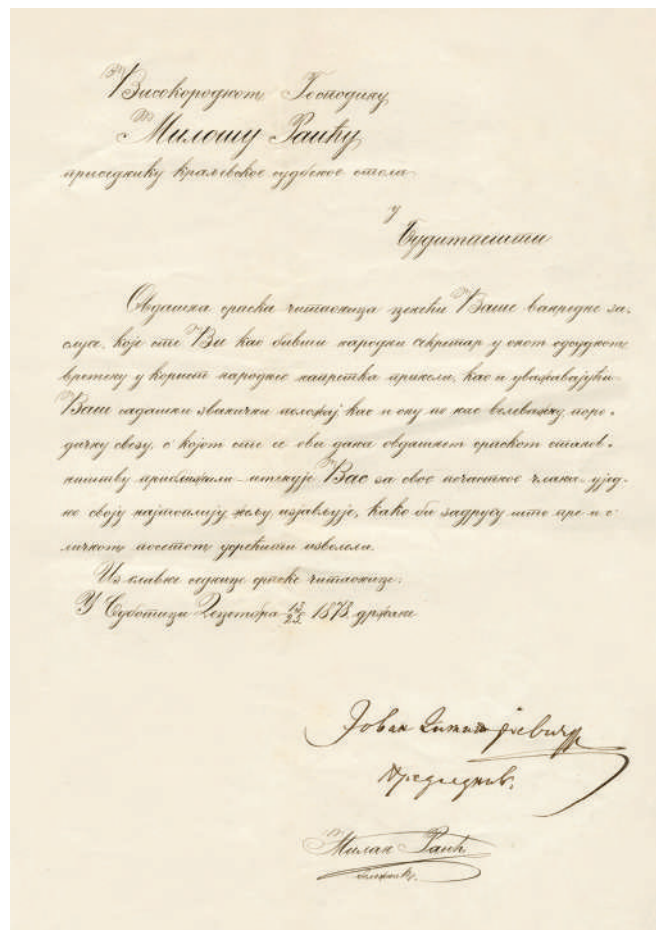 Високородном Господину
Милошу Раићу
приседнику краљевског судбеног стола
у
Будимпешти
Овдашња српска читаоница ценећи Ваше ванредне за-
слуге, које сте Ви као бивши народни секретар у оном одсудном
времену у корист народног напретка принели, као и уважавајући
Ваш садашњи званични положај као и ону по нас веле важну поро-
дичну свезу, с којом сте се ови дана овдашњем српском станов-
ништву приближили – именује Вас за свог почастног члана – ујед-
но своју најтоплију жељу изјављује, како би задругу што пре и с
личном посетом усрећити изволели.
Из главне седнице српске читаонице.
У Суботици Децембра 13/25 1878. држане
Јован
Председник.
Милан Раић